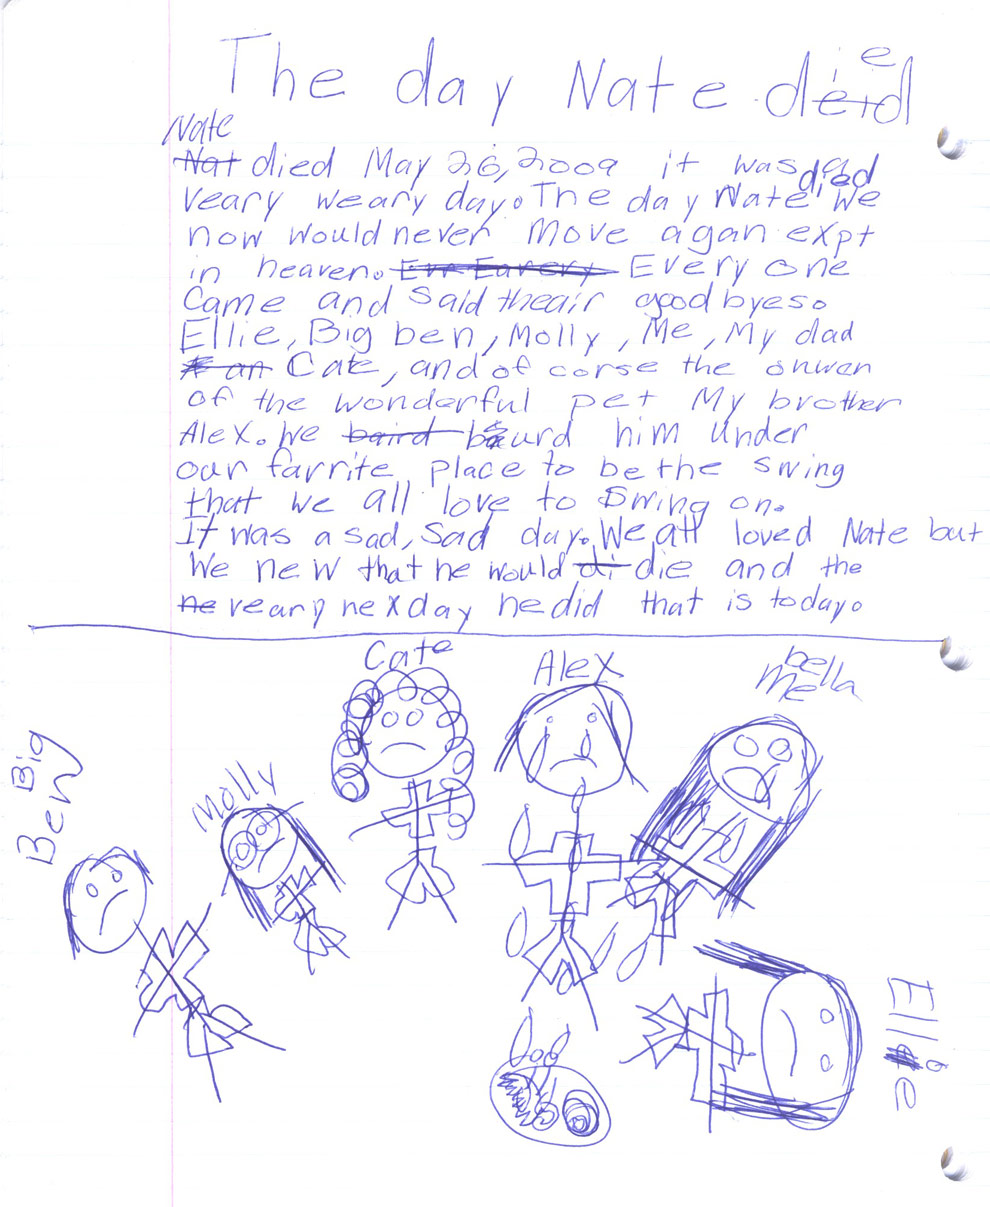 The day Nate died
Nate
Nat died May 26, 2009 it was a
veary weary day. The day Nate died we
now would never move agan expt
in heaven. Every one
Came and said theair goodbyes.
Ellie, Big ben, Molly, Me, My dad
an Cate, and of corse the onwer
of the wonderful pet My brother
Alex. We baird baurd him under
our farrite place to be the swing
that we all love to swing on.
It was a sad, sad day. We all loved Nate but
We new that he would di die and the
he veary nexday he did that is today.
Cate
Alex
bella
Me
Big
Ben
Molly
Ellie